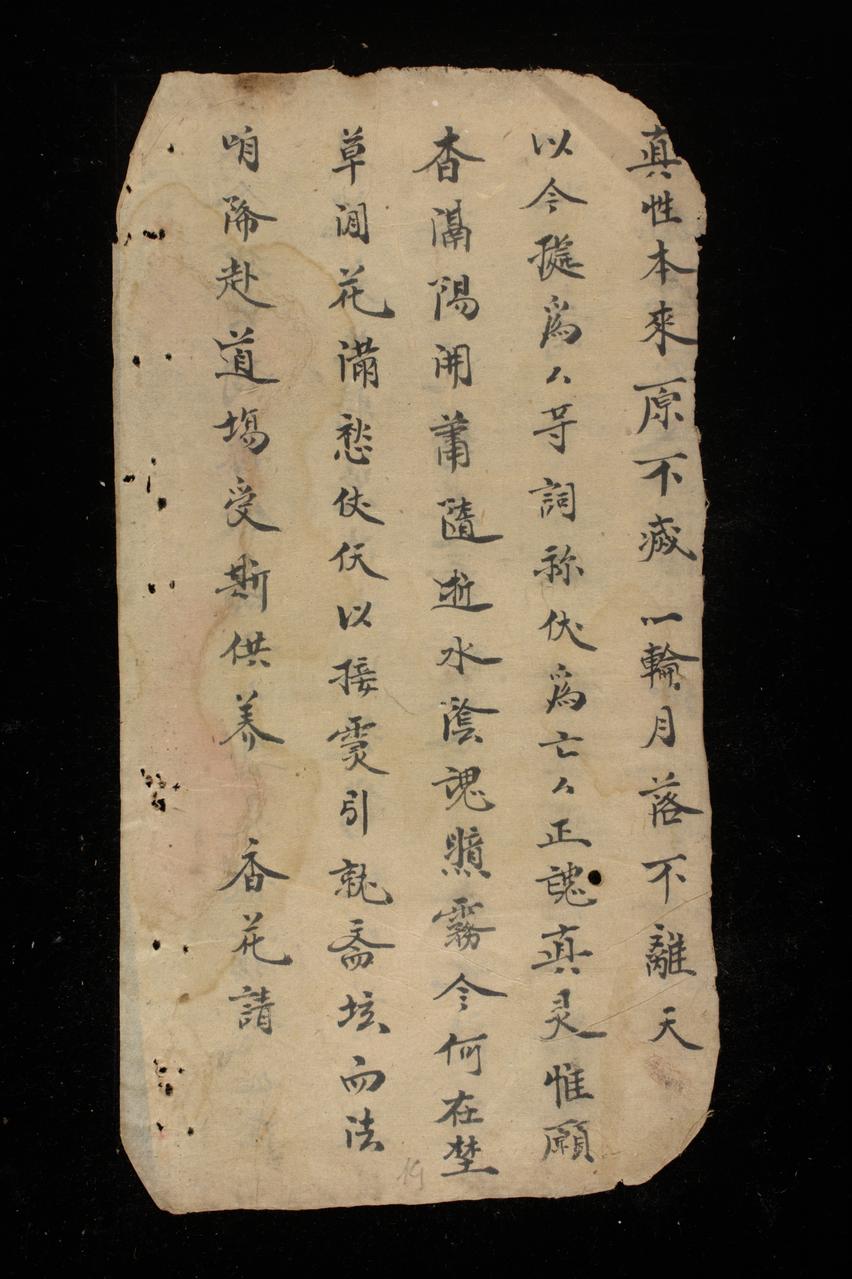 真性本來原不滅一輪月落不離天
以今㨿為厶等詞称伏為亡厶正魂真灵惟願
杳隔陽開蕭隨逝水陰魂照霧今何在埜
草閒花滿愁伏仗以接霊引就斋坛而法
咱降赴道場受斯供养 香花請